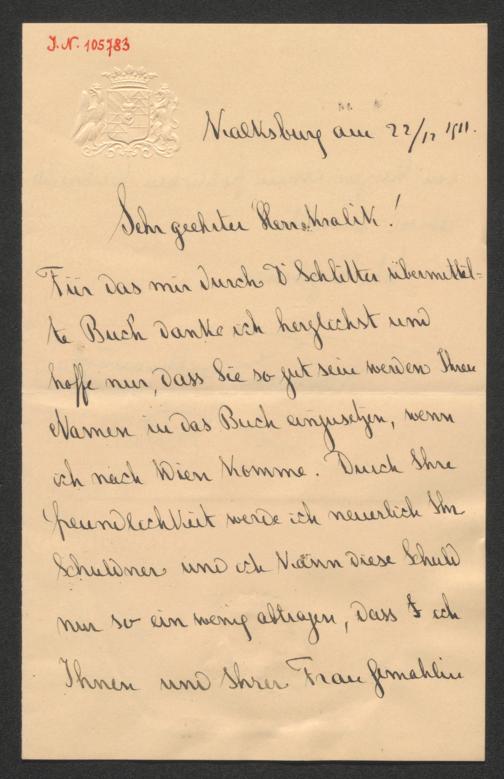 J.N. 105783
Nialksburg am 22/12 1911.
Sehr geehrter Herr Kralik!
Für das mir durch Dr Schlitter übermittel-
te Buch danke ich herzlichst und
hoffe nur, dass Sie so gut sein werden Ihren
Namen in das Buch einzusetzen, wenn
ich nach Wien komme. Durch Ihre
freundlichkeit werde ich neuerlich Ihr
Schuldner und ich kann diese Schuld
nur so ein wenig abtragen, dass ich
Ihnen und Ihrer Frau Gemahlin